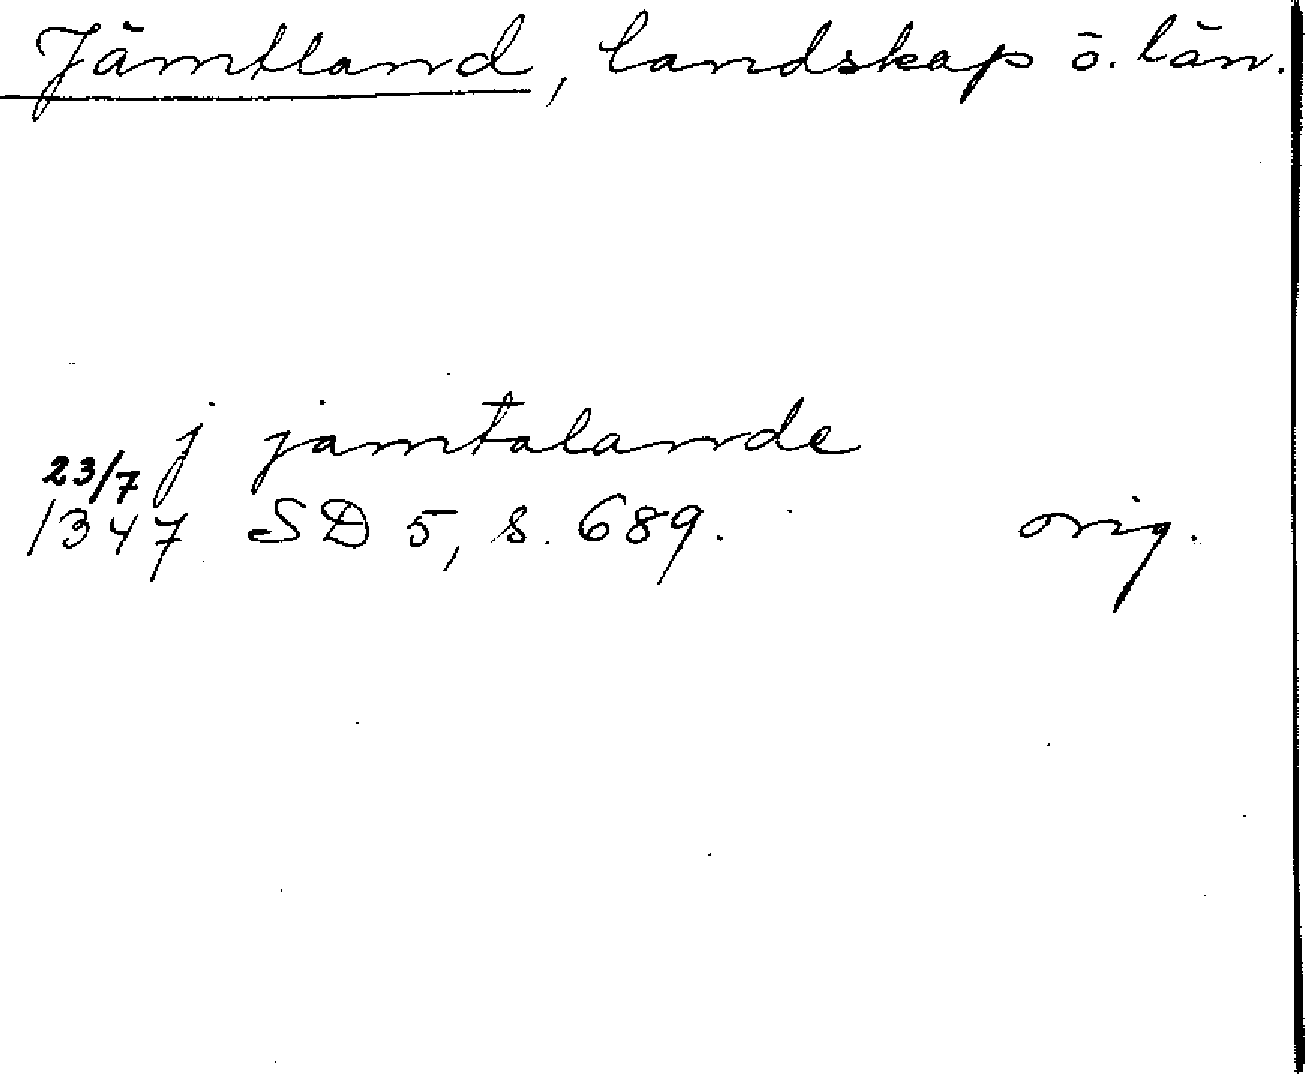 Jämtland, landskap o. län.
j jamtalande
23/7
1347 SD 5, s. 689. orig.